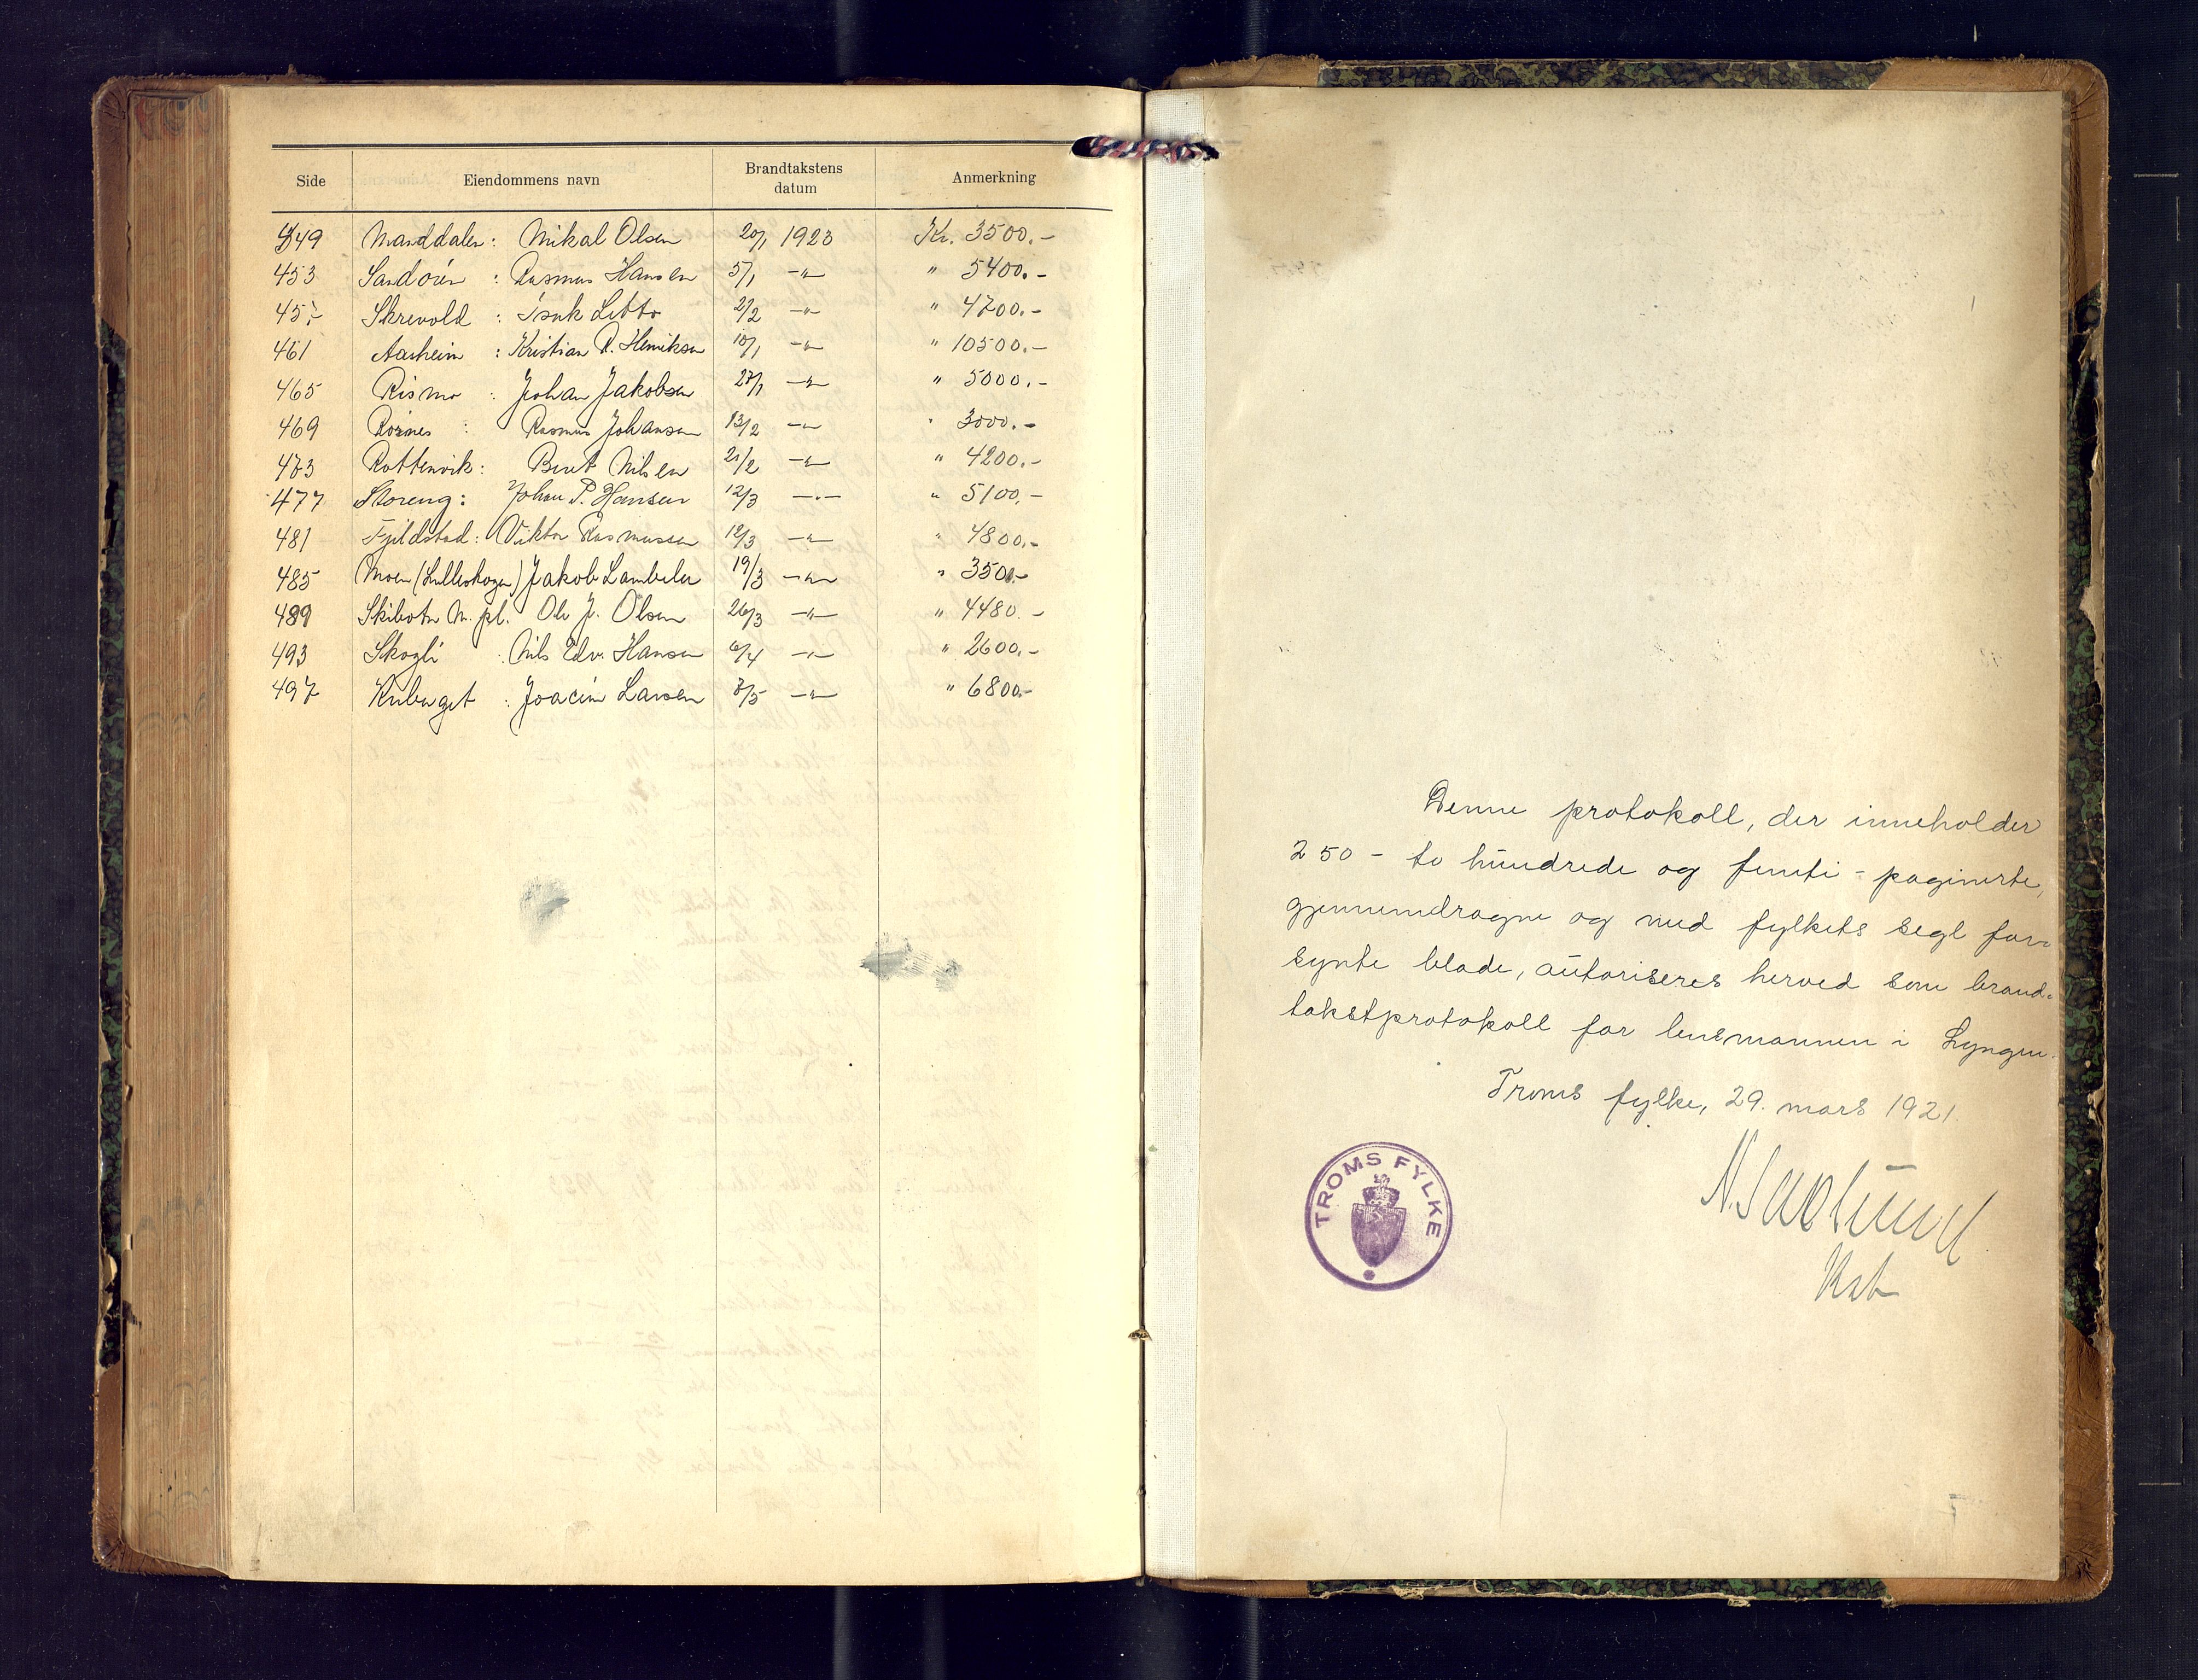 Side Eiendommens navn Brandtakstens datum Anmerkning
449 Manddalen: Mikal Olsen 20/1 1923 Kr. 3500.-
453 Sandören : Rasmus Hansen 5/1 -"- " 5400.-
457 Skrevold : Isak Lebto 2/2 -"- " 4700.-
461 Aarheim : Kristian R. Henriksen 10/1 -"- " 10500.-
465 Rismo : Johan Jakobsen 27/1 -"- " 5000.-
469 Rörnes : Rasmus Johansen 13/2 -"- " 3000.-
473 Rottenvik: Berit Nilsen 21/2 -"- " 4200.-
477 Storeng: Johan P. Hansen 12/3 -"- " 5100.-
481 Fjeldstad: Viktor Rasmussen 12/3 -"- " 4800.-
485 Moen (Lulleskogen) Jakob Lambela 19/3 -"- " 350.-
489 Skibotn M. pl. Ole J. Olsen 26/3 -"- " 4480.-
493 Skogli : Nils Edv. Hansen 6/4 -"- " 2600.-
497 : Joacim Larsen 7/5 -"- " 6800.-
Denne protokoll, der inneholder
250 - to hundrede og femti - paginerte,
gjennemdragne og med fylkets segl for-
synte blade, autoriseres herved som brand-
takstprotokoll for lensmannen i Lyngen.
Troms fylke, 29. mars 1921.
TROMS FYLKE